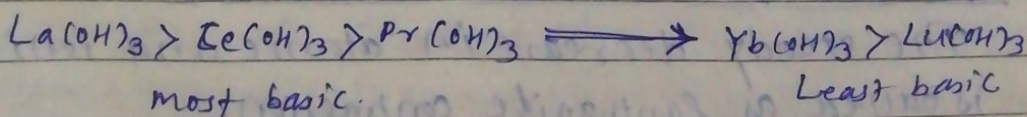 La(OH)3 > Ce(OH)3 > Pr(OH)3 ⟹ Yb(OH)3 > Lu(OH)3
most basic. Least basic